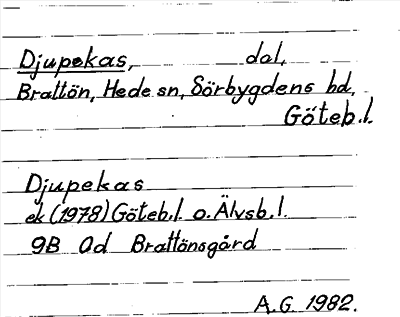 Djupekas, dal,
Brattön, Hede sn, Sörbygdens hd,
Göteb.l.
Djupekas
ek (1978) Göteb.l o. Älvsb.l.
9B 0d Brattönsgård
A.G. 1982.